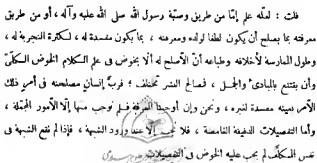 قلت : لعلّه علم إمّا من طريق وصيّة رسول الله صلى الله عليه وآله ، أو من طريق
معرفته بما يصلح أن يكون لطفا لولده ومعرفته ، بما يكون مفسدة له ، لكثرة التجربة له ،
وطول الممارسة لأخلاقه وطباعه أنّ الأصلح له ألّا يخوض في علم الكلام الخوض الكلّيّ
وأن يقتنع بالمبادئ والجمل ، فمصالح البشر تختلف ؛ فربّ إنسان مصلحته في أمر ذلك
الأمر بعينه مفسدة لغيره ، ونحن وإن أوجبنا المعرفة فلم نوجب منها إلّا الأمور المجملة ،
وأمّا التفصيلات الدقيقة الغامضة ، فلا تجب إلّا عند ورود الشبهة ، فإذا لم تقع الشبهة في
نفس المكلّف لم يجب عليه الخوض في التفصيلات